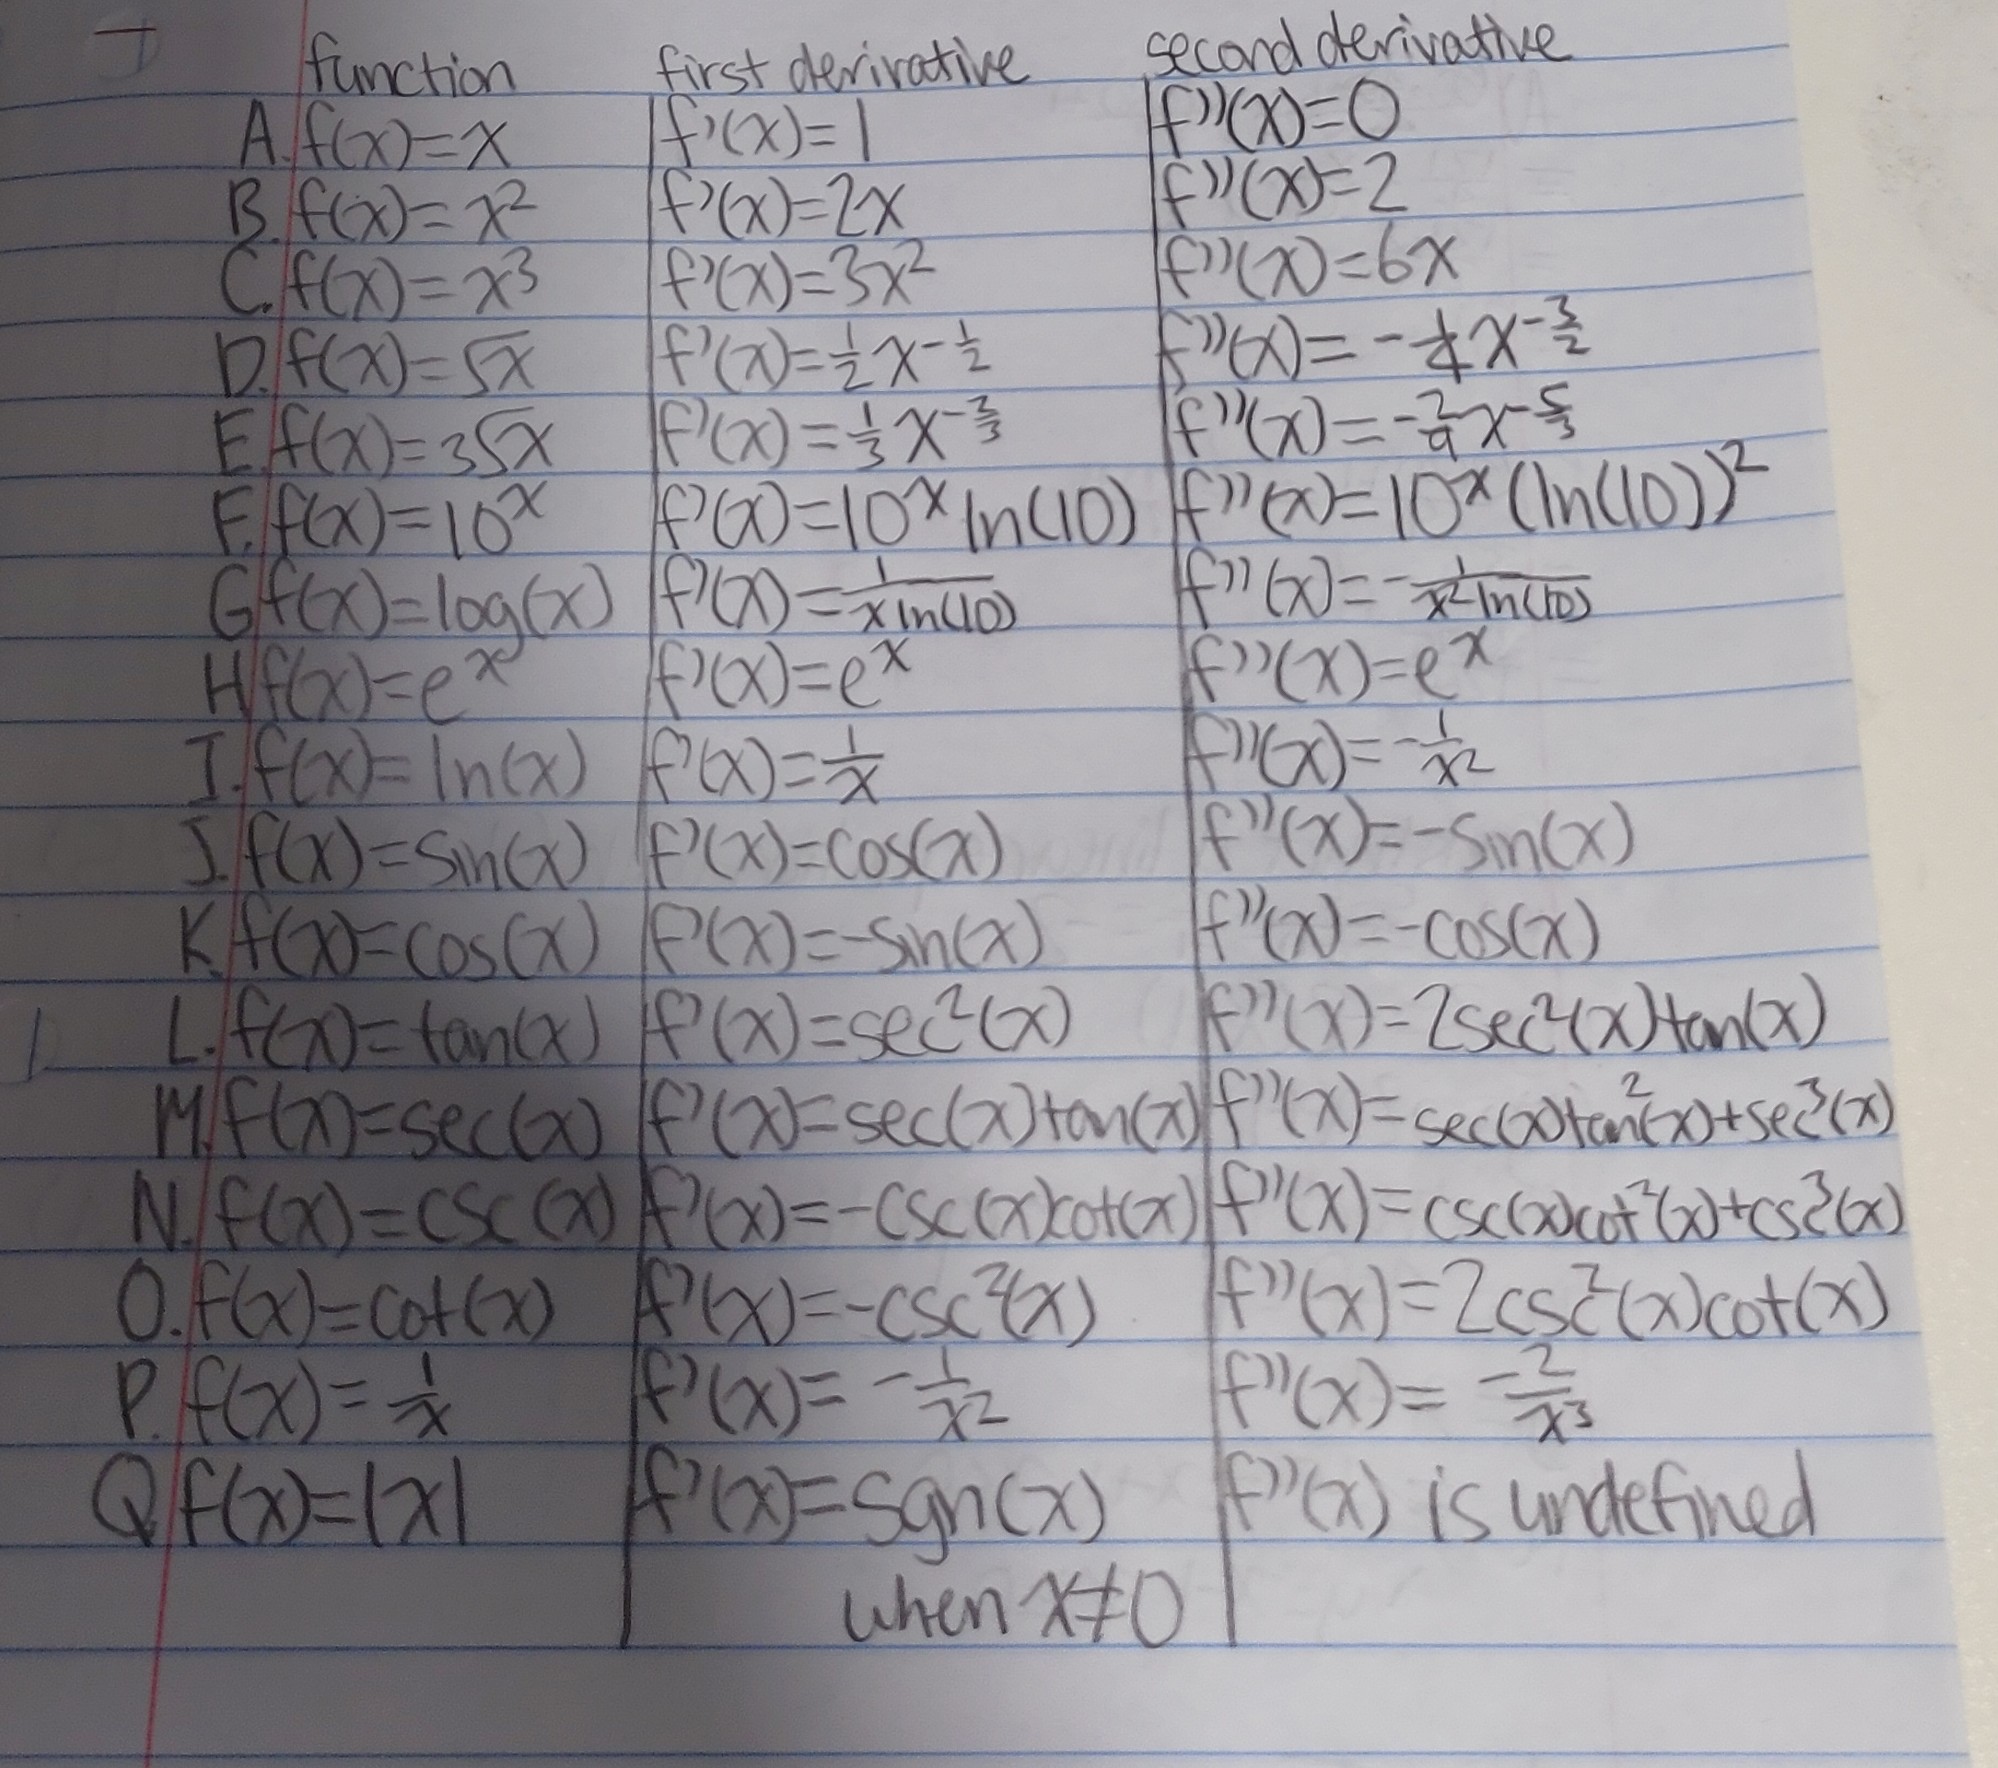 function first derivative second derivative
A. f(x)=x f'(x)=1 f''(x)=0
B. f(x)=x² f'(x)=2x f''(x)=2
C. f(x)=x³ f'(x)=3x² f''(x)=6x
D. f(x)=√x f'(x)=½x^-½ f''(x)=-¼x^-3/2
E. f(x)=3√x f'(x)=⅓x^-⅔ f''(x)=-2/9x^-5/3
F. f(x)=10^x f'(x)=10^x ln(10) f''(x)=10^x(ln(10))²
G f(x)=log(x) f'(x)=1/xln(10) f''(x)=-1/x²ln(10)
H. f(x)=e^x f'(x)=e^x f''(x)=e^x
I. f(x)=ln(x) f'(x)=1/x f''(x)=-1/x²
J. f(x)=sin(x) f'(x)=cos(x) f''(x)=-sin(x)
K. f(x)=cos(x) f'(x)=-sin(x) f''(x)=-cos(x)
L. f(x)=tan(x) f'(x)=sec²(x) f''(x)=2sec²(x)tan(x)
M. f(x)=sec(x) f'(x)=sec(x)tan(x) f''(x)=sec(x)tan²(x)+sec³(x)
N. f(x)=csc(x) f'(x)=-csc(x)cot(x) f''(x)=csc(x)cot²(x)+csc³(x)
O. f(x)=cot(x) f'(x)=-csc²(x) f''(x)=2csc²(x)cot(x)
P. f(x)=1/x f'(x)=-1/x² f''(x)=-2/x³
Q f(x)=|x| f'(x)=sgn(x) f''(x) is undefined
when x≠0